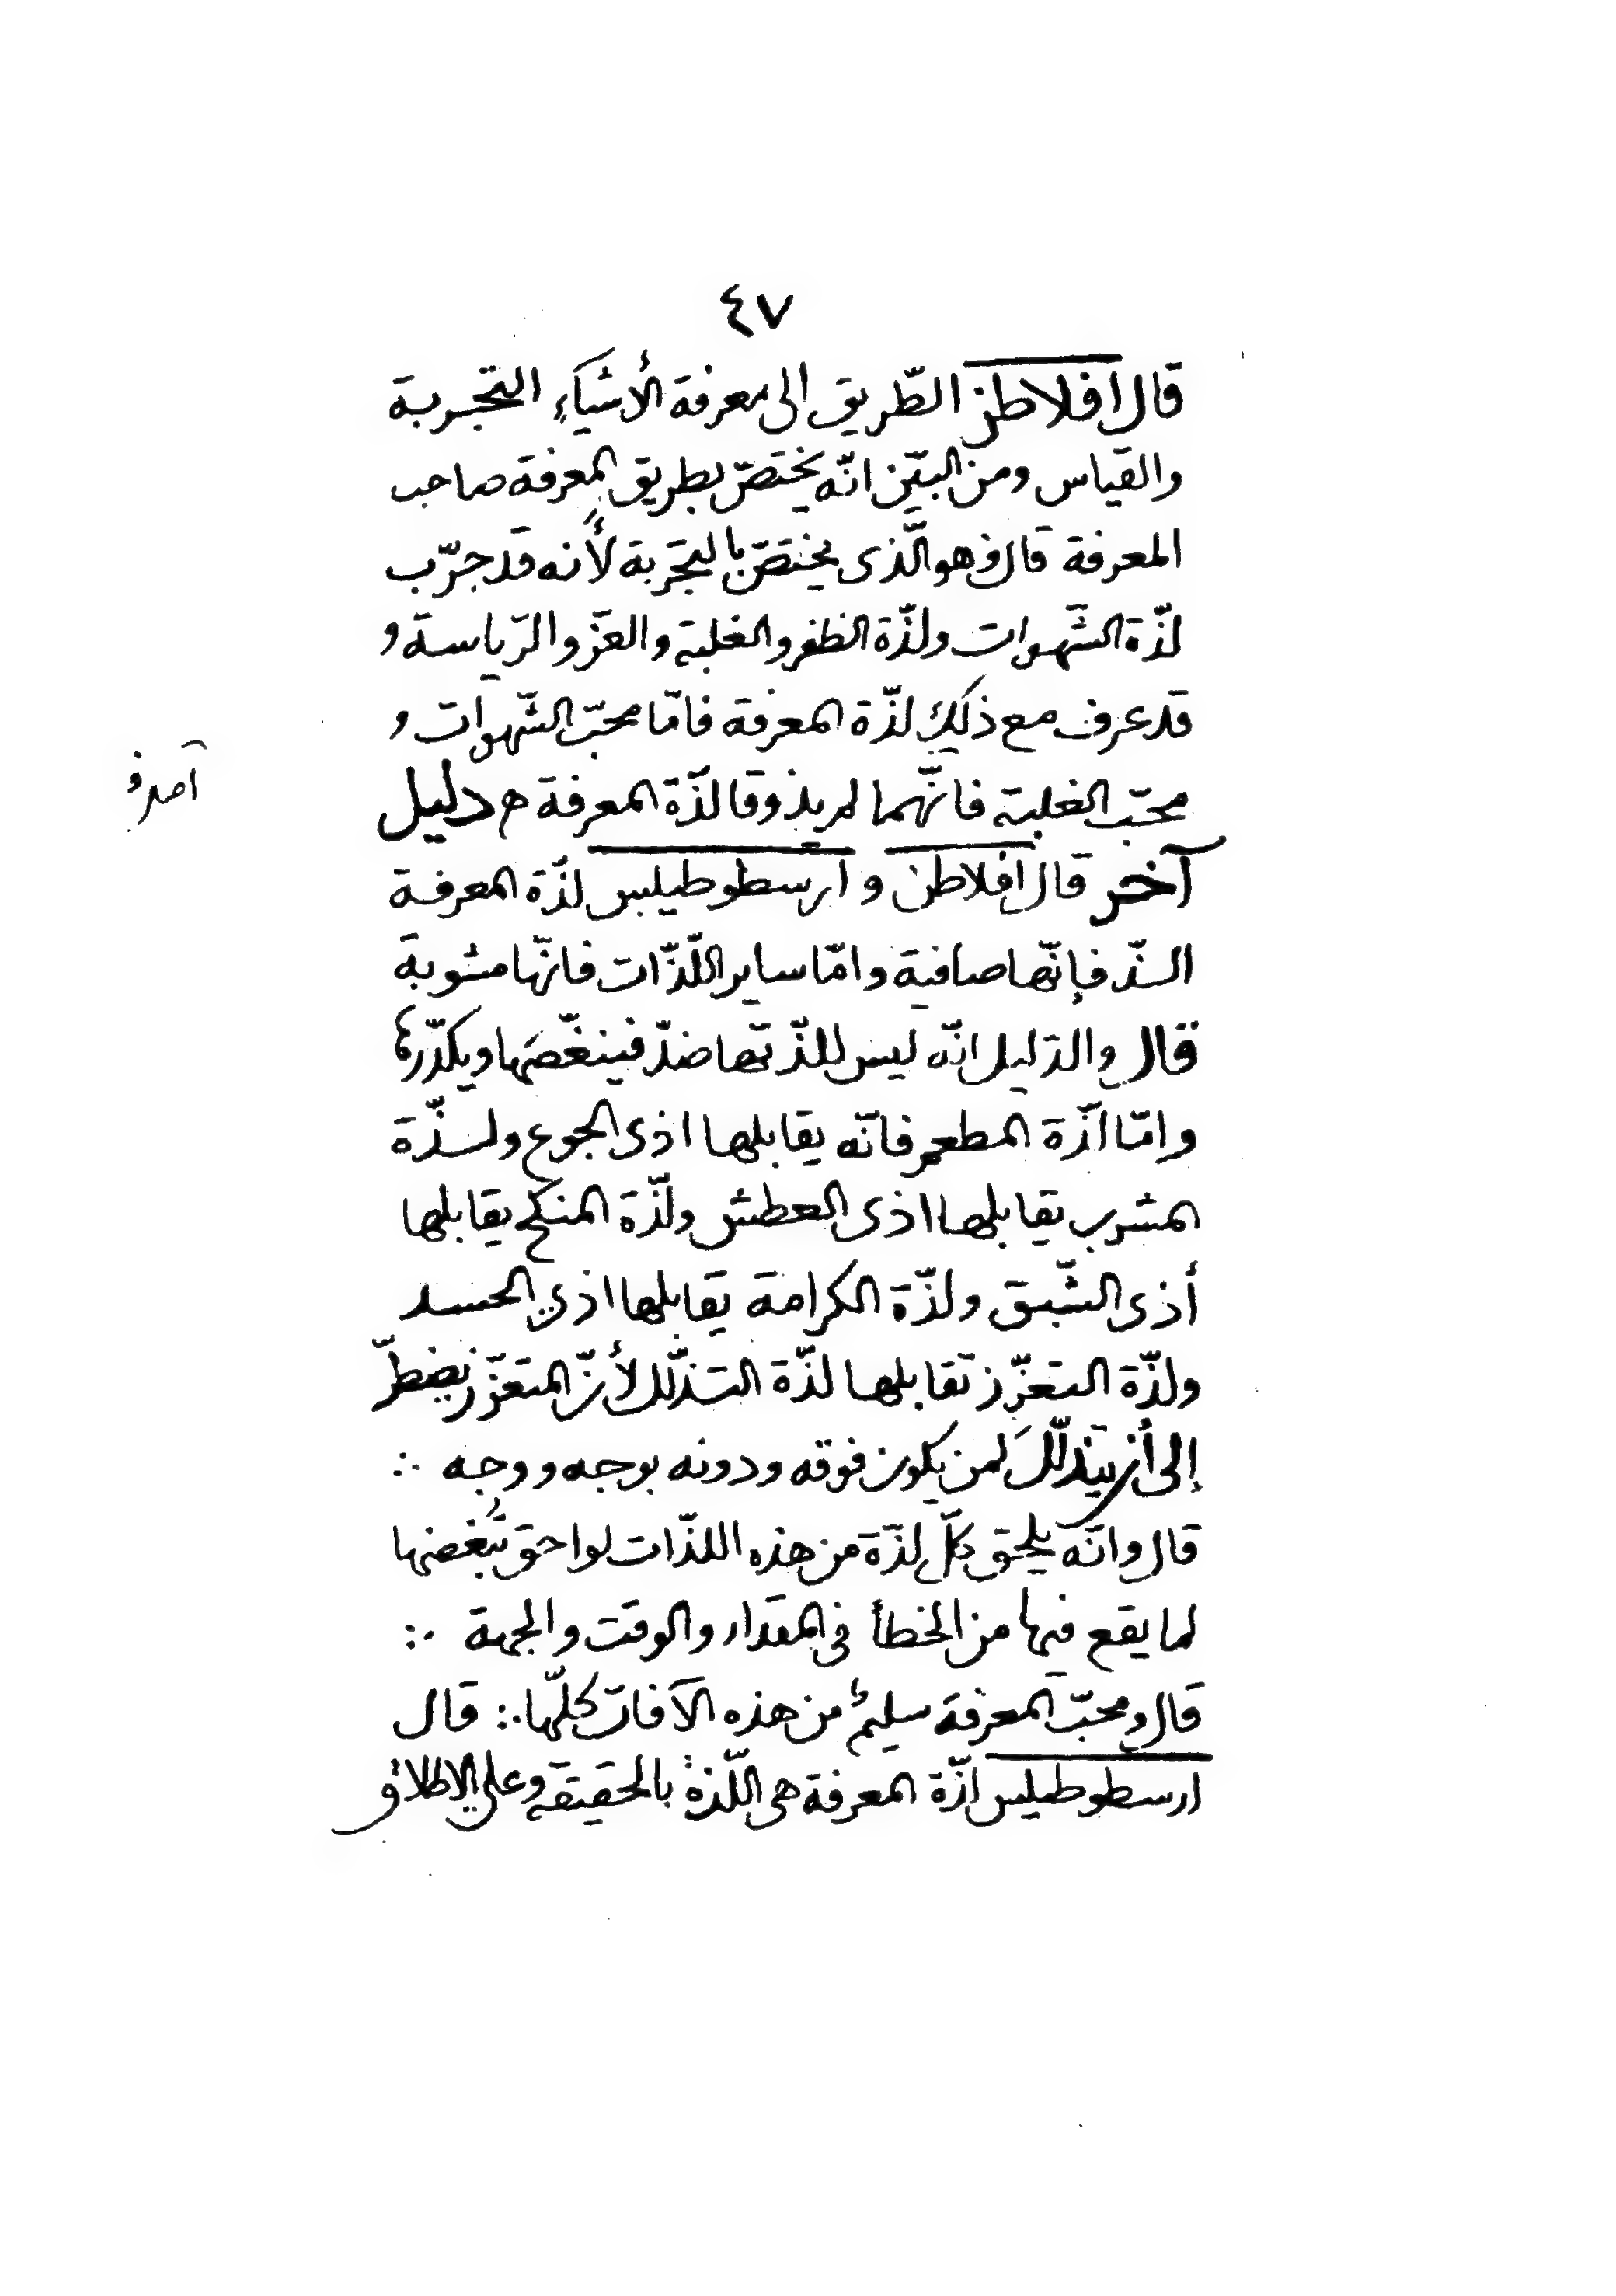 ٤٧
قال افلاطن الطّريق الى معرفة الأشياءِ التجربة
والقياس ومن البيّن انّه يختصّ بطريق المعرفة صاحب
المعرفة قال وهو الّذى يختصّ بالتجربة لأنه قد جرّب
لذّة الشّهوات ولذّة الظفر والغلبة والعزّ والرّياسة و
قد عرف مع ذلك لذّة المعرفة فامّا محبّ الشّهوات و
محبّ الغلبة فانّهما لم يذوقا لذّة المعرفة م دليل
آخر قال افلاطن و ارسطوطيلس لذّة المعرفة
الذّ فإنّها صافية وامّا ساير اللّذّات فانّها مشوبة
قال والدّليل انّه ليس للذّتها ضدّ فينغّصَها ويكدّرها
وامّا لذّة المطعم فانّه يقابلها اذى الجوع ولذّة
المشرب يقابلها اذى العطش ولذّة المنكح يقابلها
أذى الشّبق ولذّة الكرامة يقابلها اذى الحسد
ولذّة التعزّز تقابلها لذّة التذلّل لأنّ المتعزّز يضطرّ
إلى أن يتذلّلَ لمن يكون فوقه ودونه بوجه ووجه ∴
قال وانّه يلحق كلّ لذّة من هذه اللذّات لواحق تُبغضها
لما يقع فيها من الخطأ فى المقدار والوقت والجهة ∴
قال ومحبّ المعرفة سليمٌ من هذه الآفات كلّها ∴ قال
ارسطوطيلس لذّة المعرفة هى اللّذة بالحقيقة وعلى الاطلاق